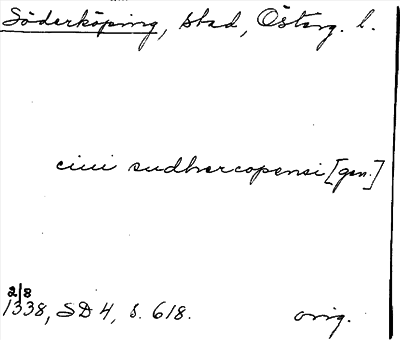 Söderköping, stad, Österg. l.
ciui sudhercopensi [gen.]
2/8
1338, SD 4, s. 618. orig.